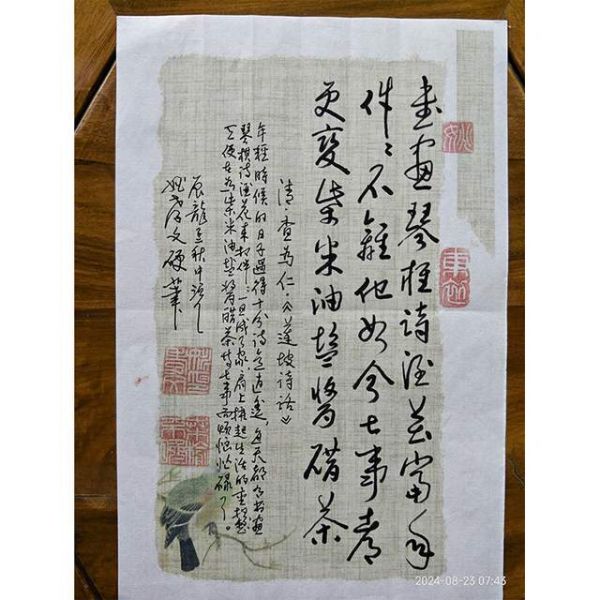 书画琴棋诗酒花当年
件件不离他如今七事都
更变柴米油盐酱醋茶
清·查为仁·《莲坡诗话》
年轻时候的日子过得十分诗意逍遥，每天都与书画
琴棋诗酒花来相伴；一旦成了家，肩上担起生活的重担，整
天便在为柴米油盐酱醋茶等七事而烦恼忙碌了。
辰龍 秋中
文硬笔
2024-08-23 07:43